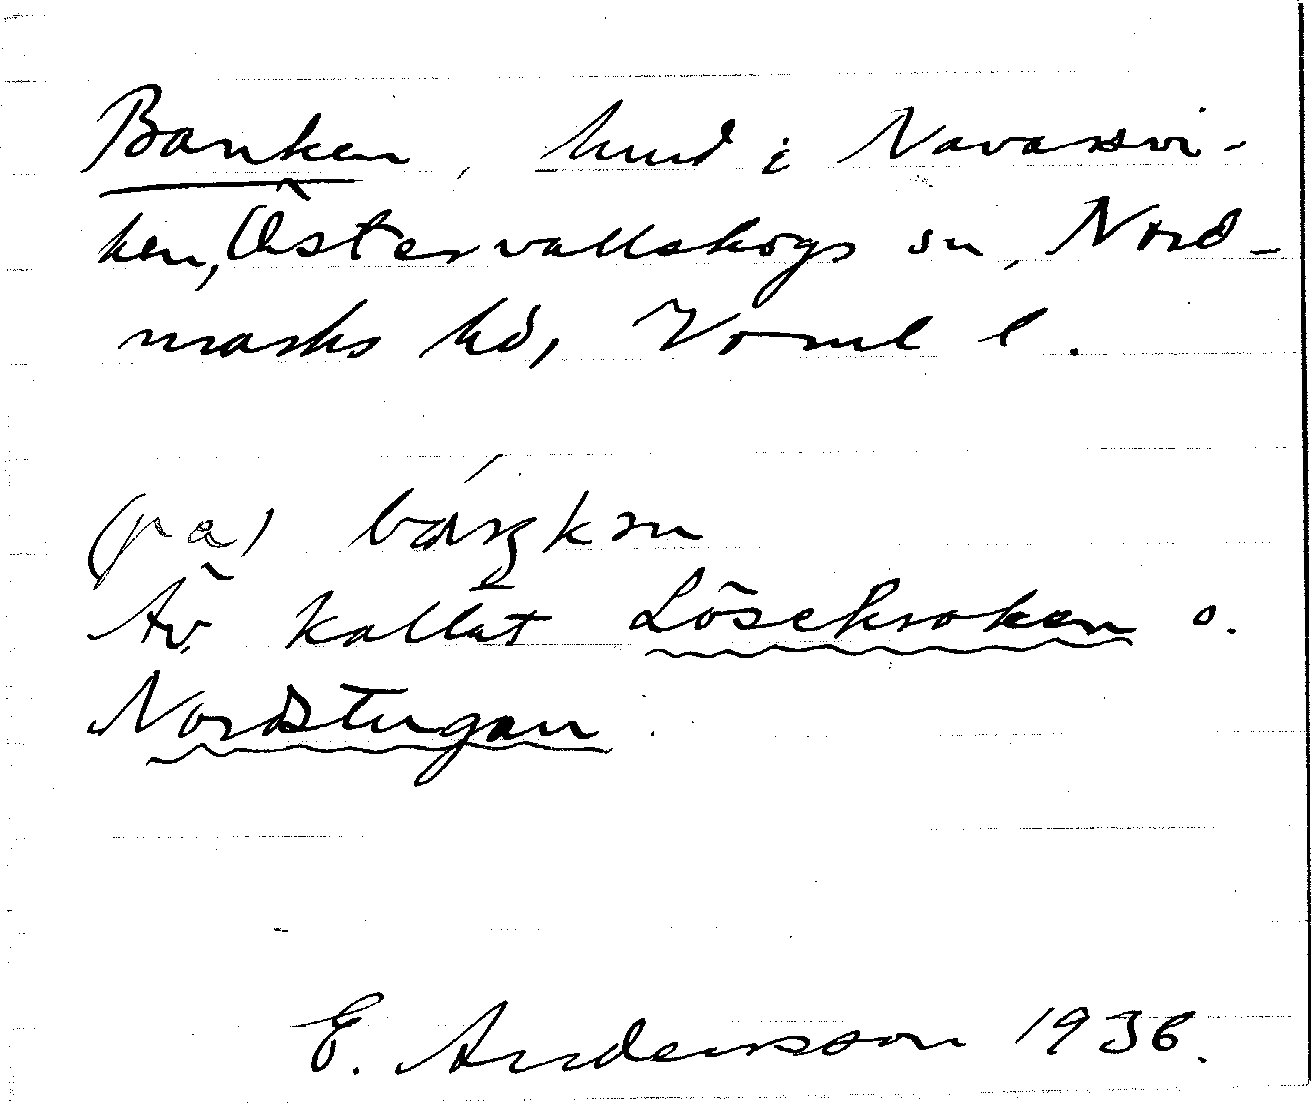 Banken, hmd i Navarsvi-
ken, Östervallskogs sn, Nord-
marks hd, Vrml l.
(pa) báŋkən
Äv. kallat Lösekroken o.
Nordstugan.
E. Andersson 1936.